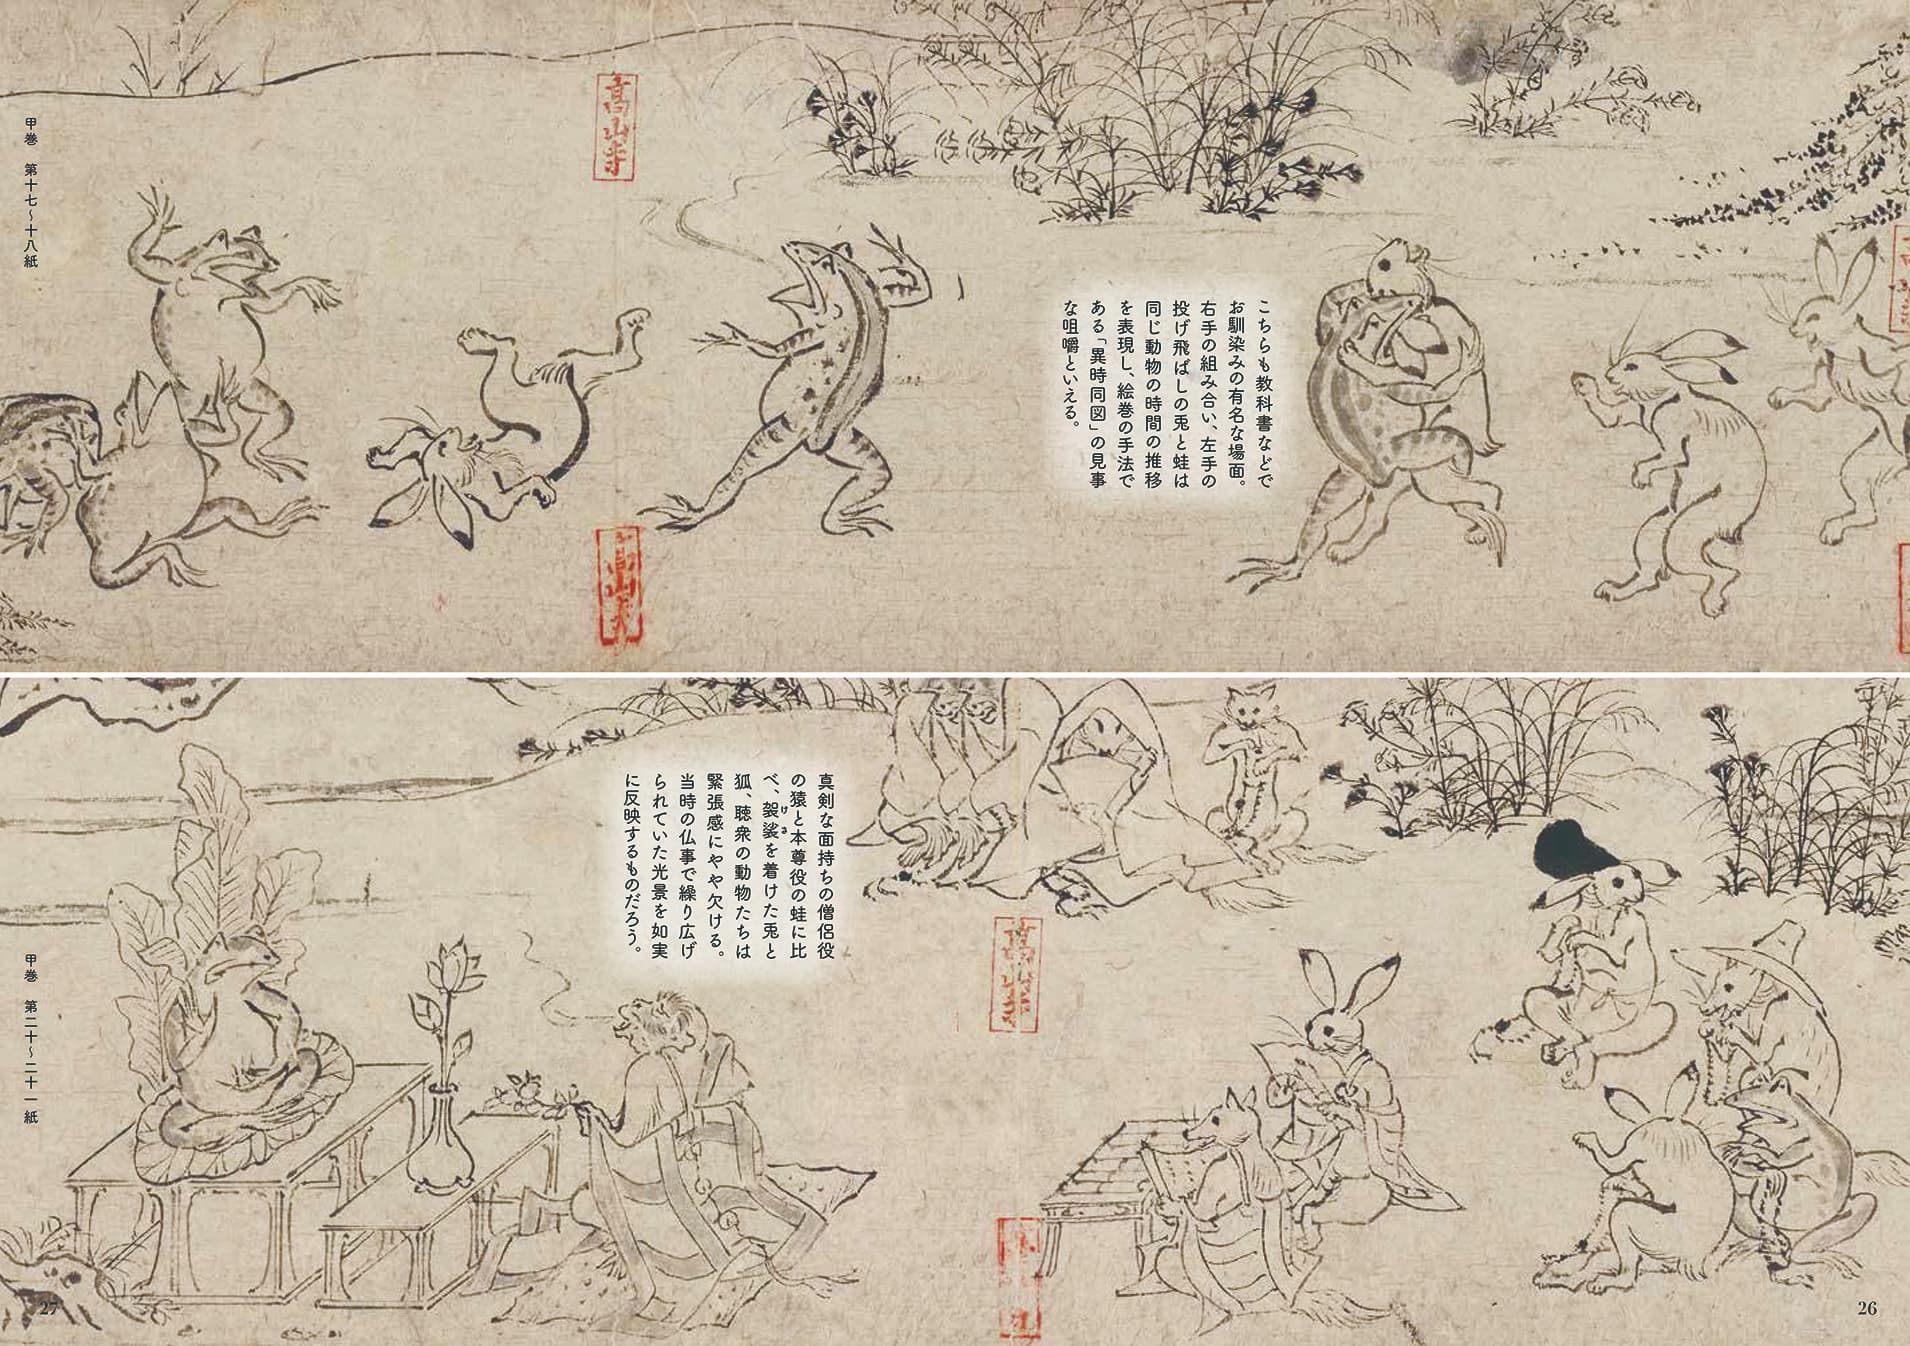 こちらも教科書などで
お馴染みの有名な場面。
右手の組み合い、左手の
投げ飛ばしの兎と蛙は
同じ動物の時間の推移
を表現し、絵巻の手法で
ある「異時同図」の見事
な咀嚼といえる。
高山寺
甲巻　第十七〜十八紙
真剣な面持ちの僧侶役
の猿と本尊役の蛙に比
べ、袈裟を着けた兎と
けさ
狐、聴衆の動物たちは
緊張感にやや欠ける。
当時の仏事で繰り広げ
られていた光景を如実
に反映するものだろう。
高山寺
甲巻　第二十〜二十一紙
26
27